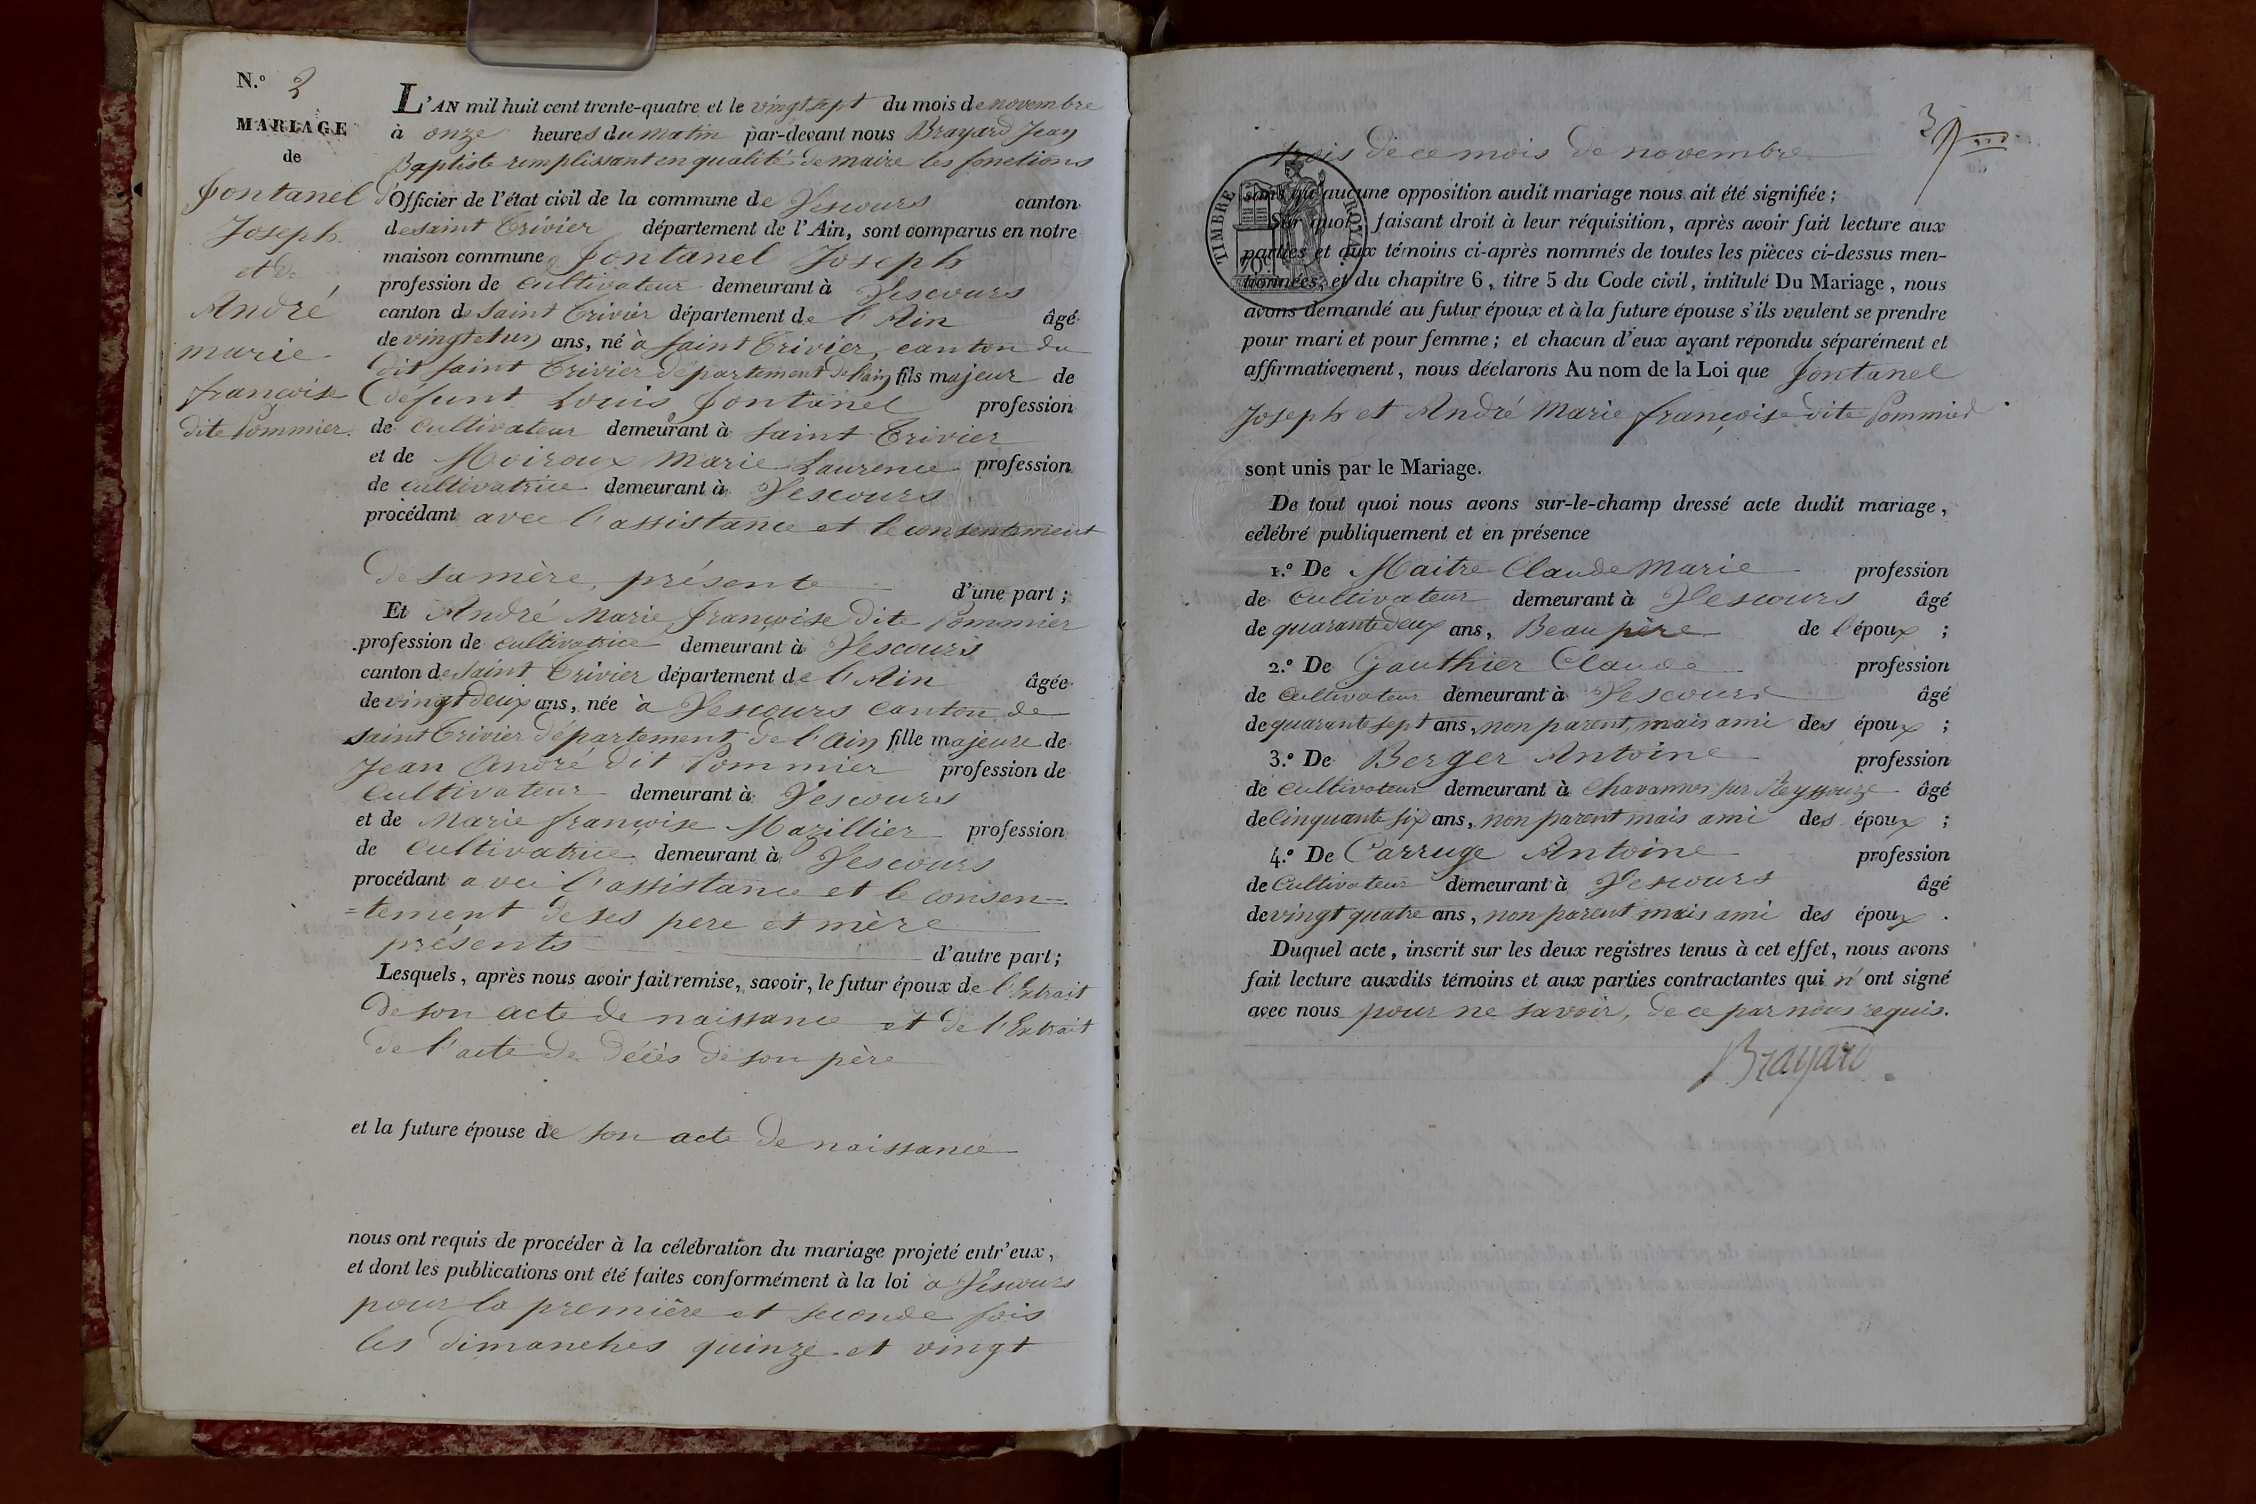 N.º 3
MARIAGE
de
Fontanel
Joseph
et de
André
marie
françoise
dite Pommier.
L'AN mil huit cent trente-quatre et le vingt sept du mois de novembre
à onze heures du matin par-devant nous Brayard Jean
Baptiste remplissant en qualité de maire les fonctions
d'Officier de l'état civil de la commune de Vescours canton
de saint Trivier département de l'Ain, sont comparus en notre
maison commune, Fontanel Joseph
profession de cultivateur demeurant à Vescours
canton de saint Trivier département de l'Ain âgé
de vingt et un ans, né à saint Trivier, canton du
dit saint Trivier département de l'ain fils majeur de
défunt Louis Fontanel profession
de cultivateur demeurant à saint Trivier
et de Moiroux Marie Laurence profession
de cultivatrice demeurant à Vescours
procédant avec l'assistance et le consentement
de sa mère, présente d'une part ;
Et André Marie françoise dite Pommier
profession de cultivatrice demeurant à Vescours
canton de saint Trivier département de l'Ain âgée
de vingt deux ans, née à Vescours canton de
saint Trivier département de l'ain fille majeure de
Jean André dit Pommier profession de
cultivateur demeurant à Vescours
et de Marie françoise Mazillier profession
de cultivatrice demeurant à Vescours
procédant avec l'assistance et le consen=
=tement de ses pere et mère
présents d'autre part ;
Lesquels, après nous avoir fait remise, savoir, le futur époux de l'Extrait
de son acte de naissance et de l'Extrait
de l'acte de décès de son père
et la future épouse de son acte de naissance
nous ont requis de procéder à la célébration du mariage projeté entr'eux,
et dont les publications ont été faites conformément à la loi a Vescours
pour la première et seconde fois
les dimanches quinze et vingt
3
trois de ce mois de novembre
TIMBRE ROYAL
70c
sans qu'aucune opposition audit mariage nous ait été signifiée ;
Sur quoi, faisant droit à leur réquisition, après avoir fait lecture aux
parties et aux témoins ci-après nommés de toutes les pièces ci-dessus men-
tionnées, et du chapitre 6, titre 5 du Code civil, intitulé Du Mariage, nous
avons demandé au futur époux et à la future épouse s'ils veulent se prendre
pour mari et pour femme ; et chacun d'eux ayant répondu séparément et
affirmativement, nous déclarons Au nom de la Loi que Fontanel
Joseph et André Marie françoise dite Pommier
sont unis par le Mariage.
De tout quoi nous avons sur-le-champ dressé acte dudit mariage,
célébré publiquement et en présence
1.º De Maitre Claude Marie profession
de cultivateur demeurant à Vescours âgé
de quarante deux ans, Beau père de l'époux ;
2.º De Gauthier Claude profession
de cultivateur demeurant à Vescours âgé
de quarante sept ans, non parent, mais ami des époux ;
3.º De Berger Antoine profession
de cultivateur demeurant à Chavannes sur Reyssouze âgé
de Cinquante six ans, non parent mais ami des époux ;
4.º De Carruge Antoine profession
de cultivateur demeurant à Vescours âgé
de vingt quatre ans, non parent mais ami des époux .
Duquel acte, inscrit sur les deux registres tenus à cet effet, nous avons
fait lecture auxdits témoins et aux parties contractantes qui n'ont signé
avec nous pour ne savoir, de ce par nous requis.
Brayard